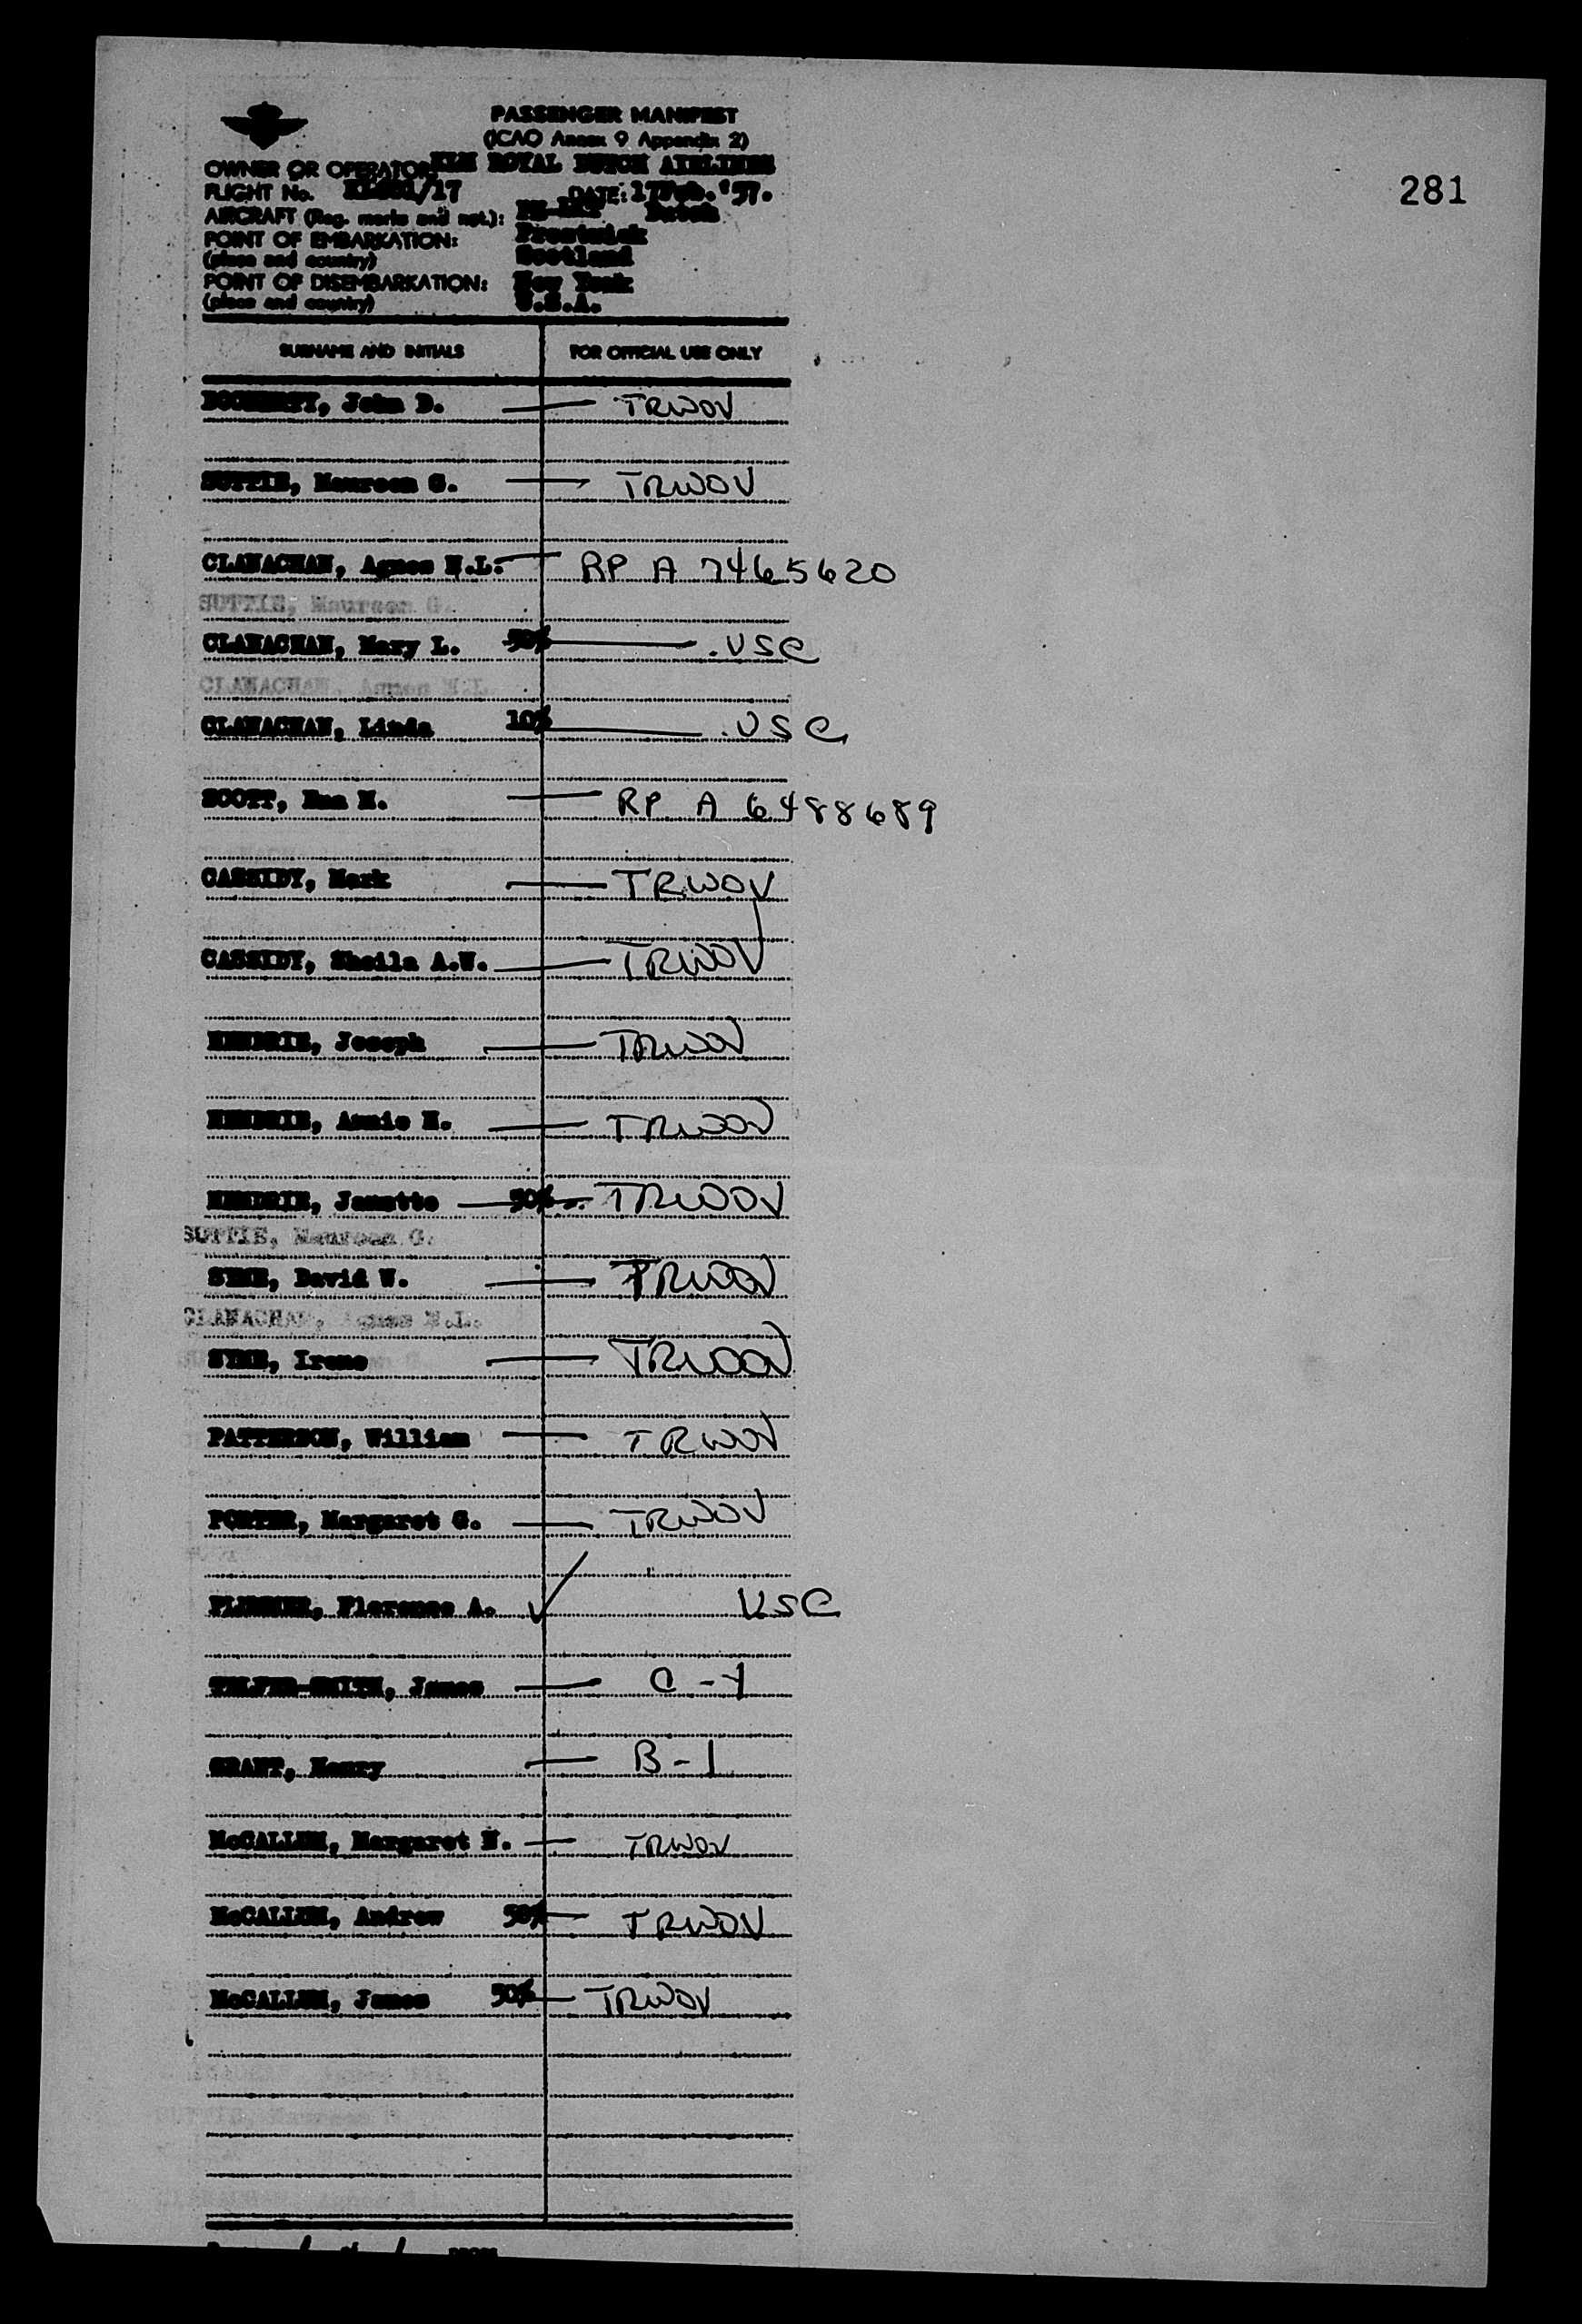 PASSENGER MANIFEST
(ICAO Annex 9 Appendix 2)
OWNER OR OPERATOR: KLM ROYAL DUTCH AIRLINES
FLIGHT No. /17 DATE: 17Feb.'57.
AIRCRAFT (Reg. marks and nat.): Dutch
POINT OF EMBARKATION: Prestwick
(place and country) Scotland
POINT OF DISEMBARKATION: New York
(place and country) U.S.A.
281
SURNAME AND INITIALS FOR OFFICIAL USE ONLY
DOCHERTY, John D. TRWOV
SUTTIE, Maureen G. TRWOV
CLANACHAN, Agnes N.L. RP A 7465620
SUTTIE, Maureen G.
CLANACHAN, Mary L. 50% USC
CLANACHAN, Agnes N.L.
CLANACHAN, Linda 10% USC
SCOTT, M. RP A 6488689
CASSIDY, Mark TRWOV
CASSIDY, Sheila A.W. TRWOV
HENDRIE, Joseph TRWOV
HENDRIE, Annie TRWOV
HENDRIE, Janette 50% TRWOV
SUTTIE, Maureen G.
SYME, David W. TRWOV
CLANACHAN, Agnes N.L.
SYME, Irene TRWOV
PATTERSON, William TRWOV
PORTER, Margaret G. TRWOV
Florence A. USC
TELFER-SMITH, James C-1
GRANT, Henry B-1
McCALLUM, Margaret N. TRWOV
McCALLUM, Andrew 50% TRWOV
McCALLUM, James 50% TRWOV